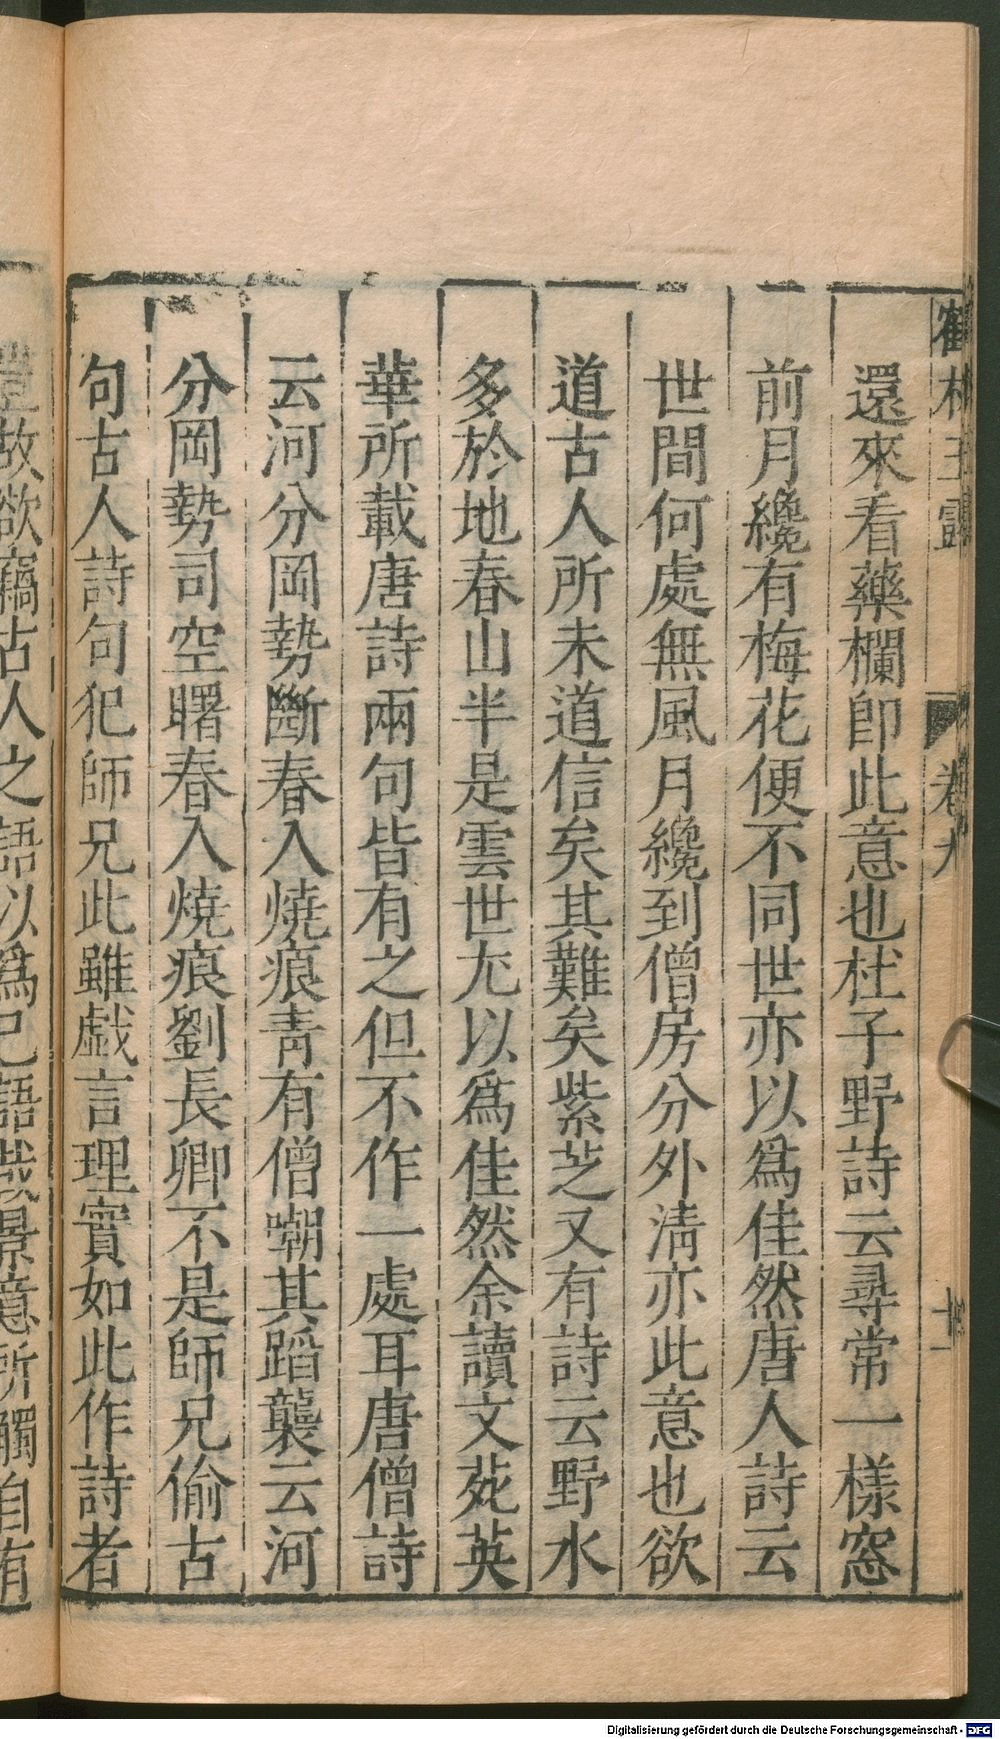 還來看藥欄卽此意也杜子野詩云尋常一樣窓
前月纔有梅花便不同世亦以爲佳然唐人詩云
世間何處無風月纔到僧房分外淸亦此意也欲
道古人所未道信矣其難矣紫芝又有詩云野水
多於地春山半是雲世尤以爲佳然余讀文苑英
華所載唐詩兩句皆有之但不作一處耳唐僧詩
云河分岡勢斷春入燒痕靑有僧嘲其蹈襲云河
分岡勢司空曙春入燒痕劉長卿不是師兄偷古
句古人詩句犯師兄此雖戯言理實如此作詩者
故欲竊古人之語以爲己語哉景意所觸自有
卷九
十一
Digitalisierung gefördert durch die Deutsche Forschungsgemeinschaft - DFG